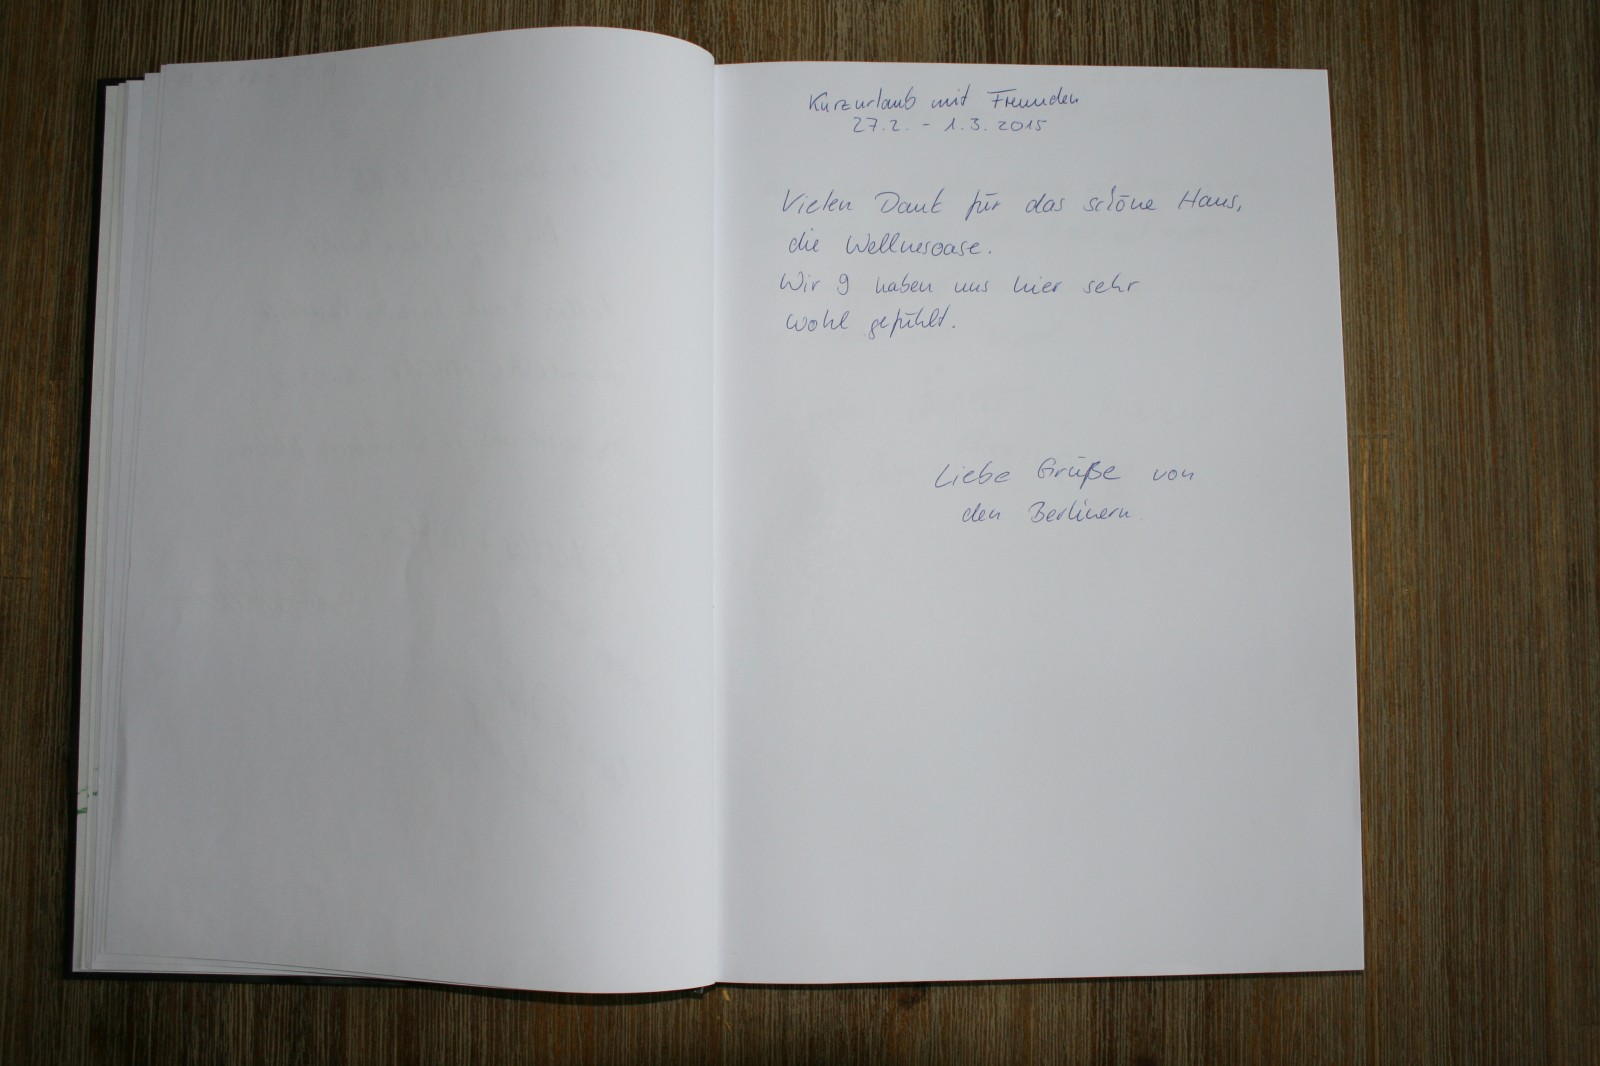 Kurzurlaub mit Freunden
27.2. - 1.3. 2015
Vielen Dank für das schöne Haus,
die Wellnesoase.
Wir 9 haben uns hier sehr
wohl gefühlt.
Liebe Grüße von
den Berlinern